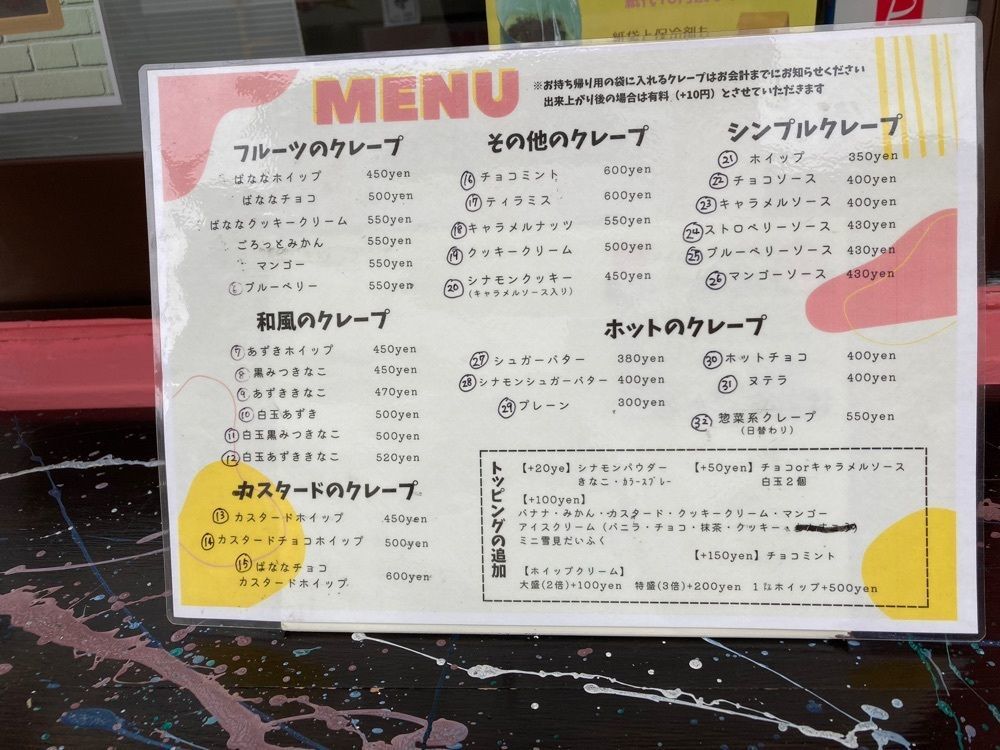 MENU
※お持ち帰り用の袋に入れるクレープはお会計までにお知らせください
出来上がり後の場合は有料（+10円）とさせていただきます
フルーツのクレープ
ばななホイップ 450yen
ばななチョコ 500yen
ばななクッキークリーム 550yen
ごろっとみかん 550yen
マンゴー 550yen
⑥ブルーベリー 550yen
和風のクレープ
⑦あずきホイップ 450yen
⑧黒みつきなこ 450yen
⑨あずききなこ 470yen
⑩白玉あずき 500yen
⑪白玉黒みつきなこ 500yen
⑫白玉あずききなこ 520yen
カスタードのクレープ
⑬カスタードホイップ 450yen
⑭カスタードチョコホイップ 500yen
⑮ばななチョコ
カスタードホイップ 600yen
その他のクレープ
⑯チョコミント 600yen
⑰ティラミス 600yen
⑱キャラメルナッツ 550yen
⑲クッキークリーム 500yen
⑳シナモンクッキー 450yen
（キャラメルソース入り）
シンプルクレープ
㉑ホイップ 350yen
㉒チョコソース 400yen
㉓キャラメルソース 400yen
㉔ストロベリーソース 430yen
㉕ブルーベリーソース 430yen
㉖マンゴーソース 430yen
ホットのクレープ
㉗シュガーバター 380yen
㉘シナモンシュガーバター 400yen
㉙プレーン 300yen
㉚ホットチョコ 400yen
㉛ヌテラ 400yen
㉜惣菜系クレープ 550yen
（日替わり）
トッピングの追加
【+20ye】シナモンパウダー
きなこ・カラースプレー
【+50yen】チョコorキャラメルソース
白玉２個
【+100yen】
バナナ・みかん・カスタード・クッキークリーム・マンゴー
アイスクリーム（バニラ・チョコ・抹茶・クッキー
ミニ雪見だいふく
【+150yen】チョコミント
【ホイップクリーム】
大盛(2倍)+100yen 特盛(3倍)+200yen ホイップ+500yen